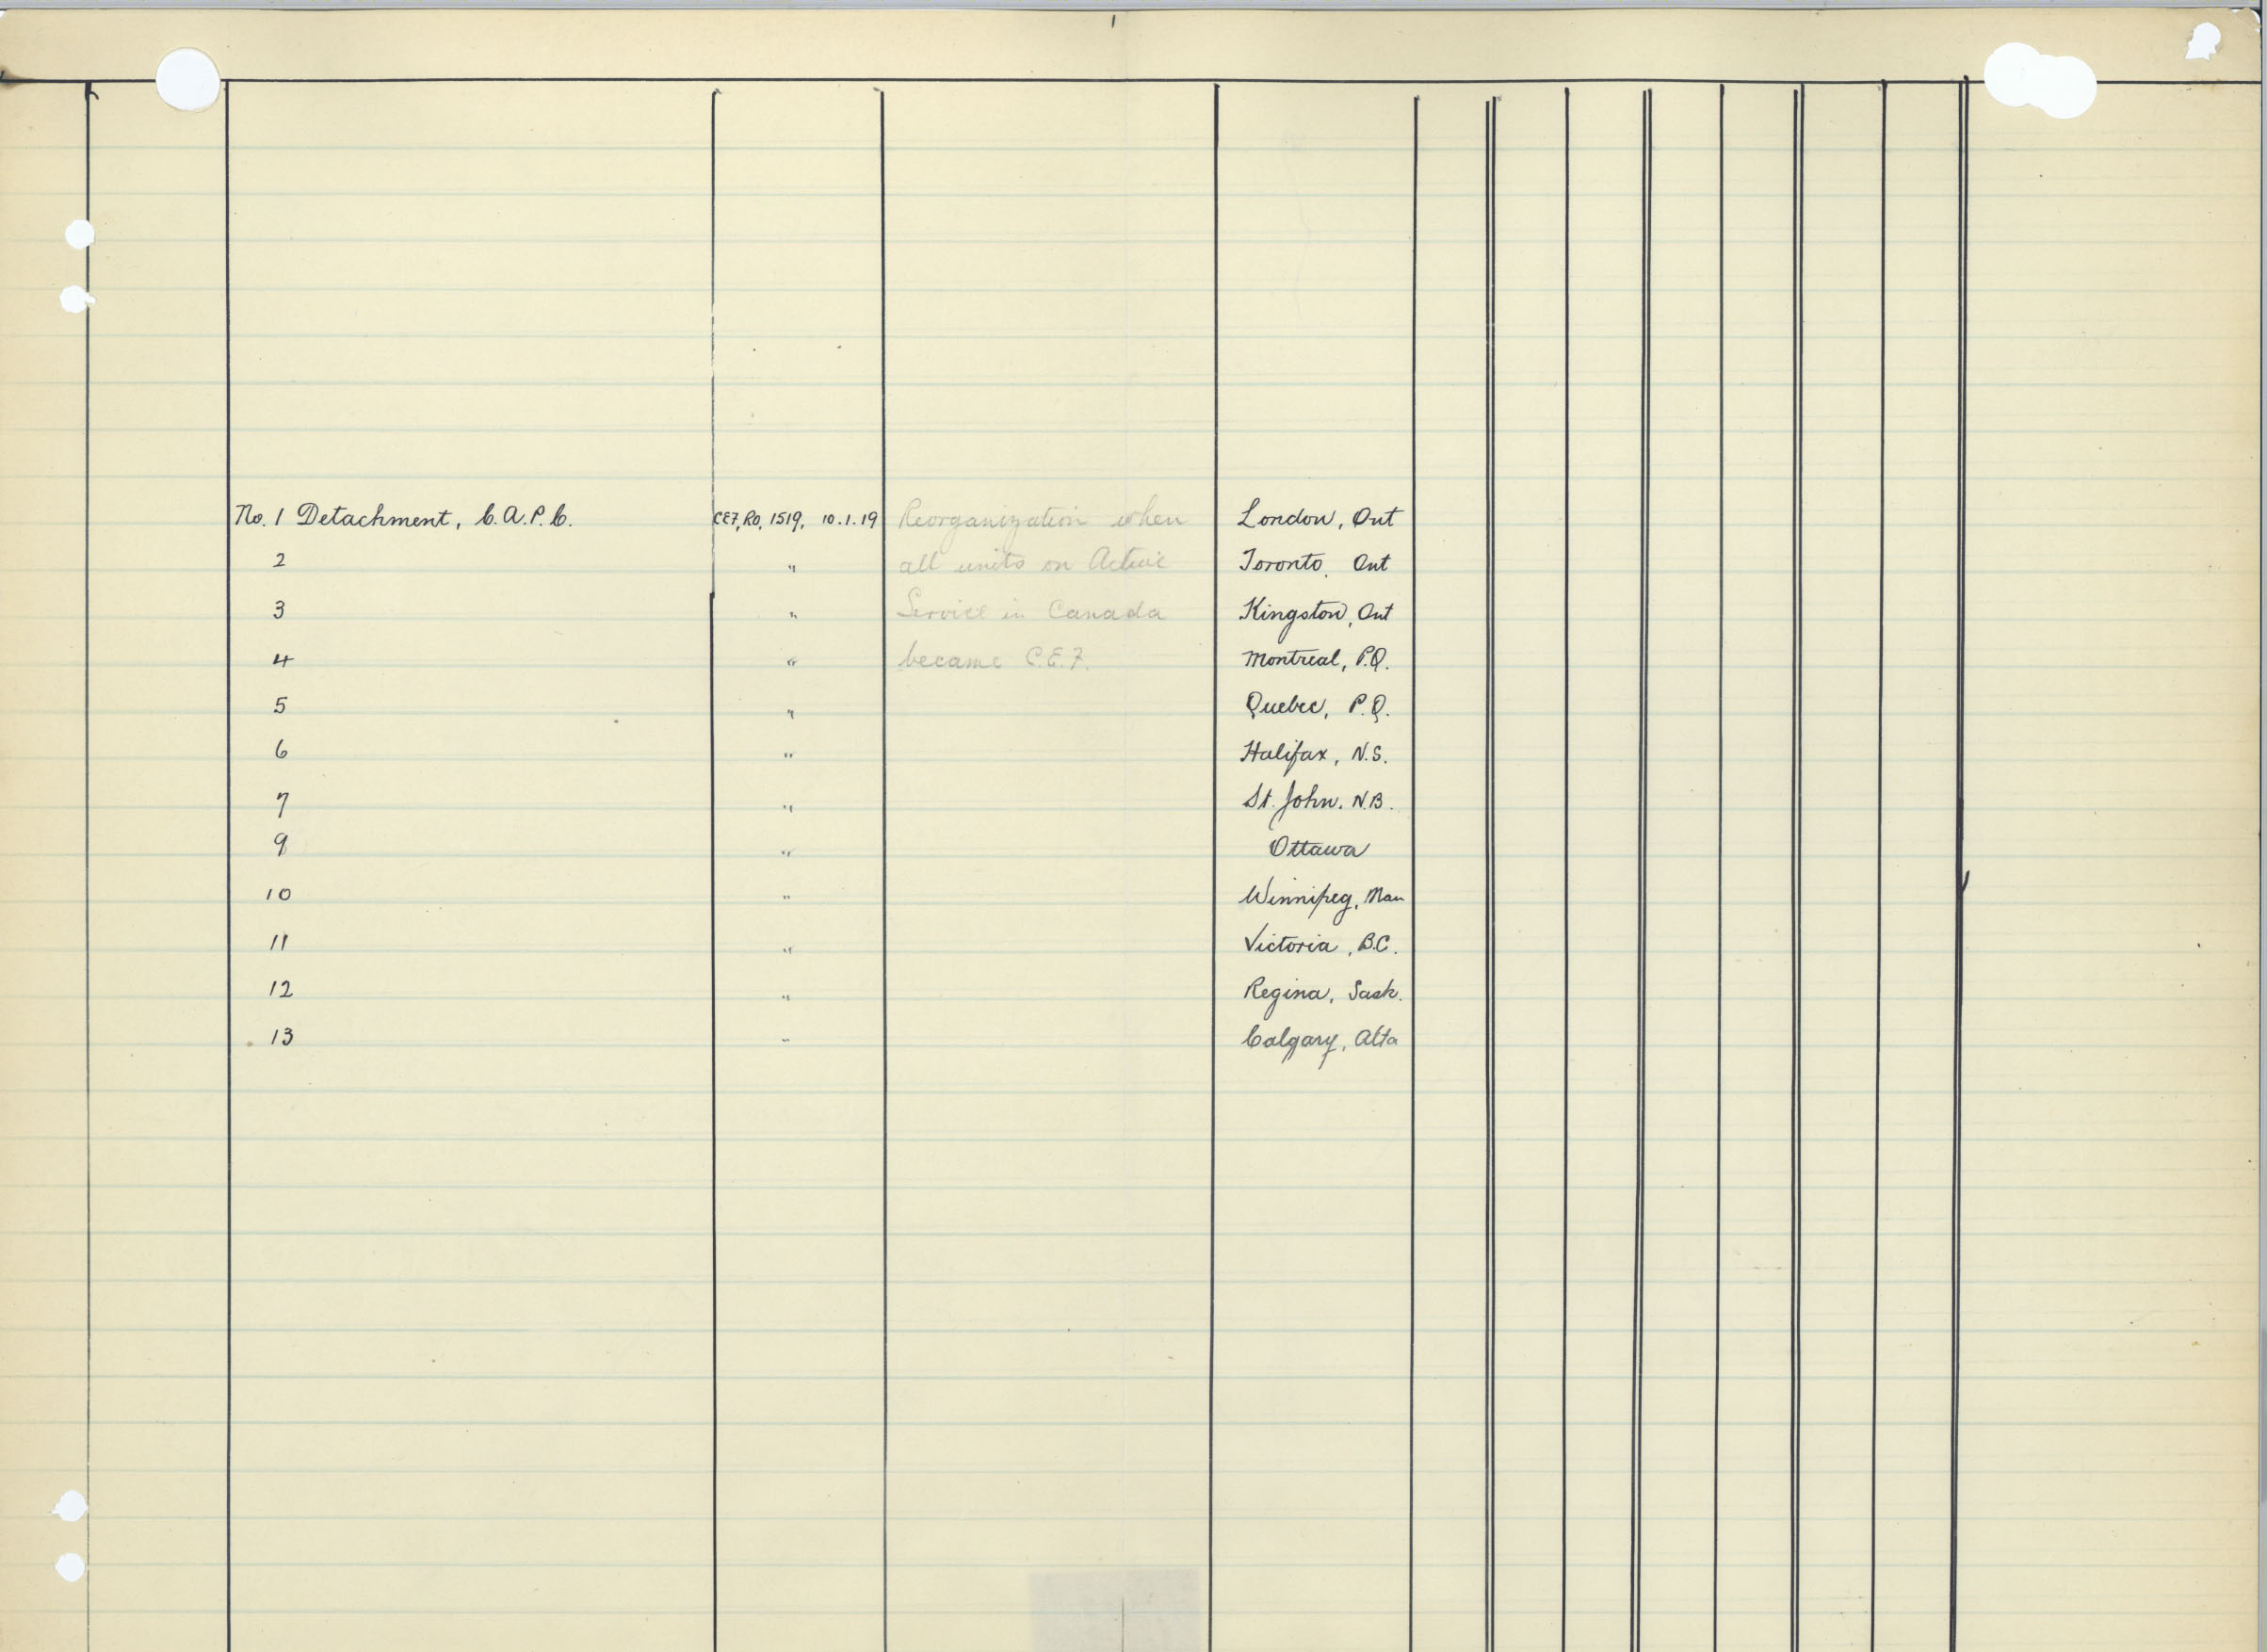 No. 1 Detachment, C.A.P.C. CEF, RO, 1519, 10.1.19 Reorganization when London, Ont
2 " all units on Active Toronto, Ont
3 " Service in Canada Kingston, Ont
4 " became C.E.F. Montreal, P.Q.
5 " Quebec, P.Q.
6 " Halifax, N.S.
7 " St. John. N.B.
9 " Ottawa
10 " Winnipeg, Man
11 " Victoria, B.C.
12 " Regina, Sask.
13 " Calgary, Alta